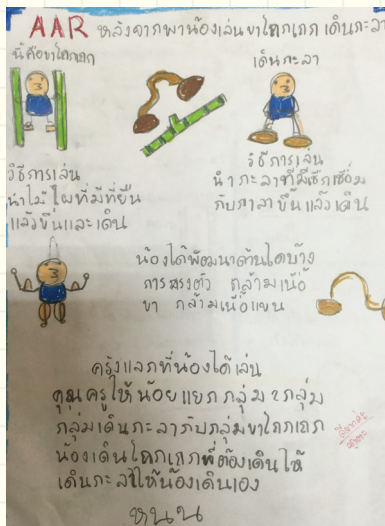 AAR หลังจากพาน้องเล่นขาโถกเถก เดินกะลา
นี้คือขาโถกเถก
เดินกะลา
วิธีการเล่น
นำไม้ไผ่ที่มีที่ยืน
แล้วขึ้นและเดิน
วิธีการเล่น
นำกะลาที่มีเชือกเชื่อม
กับกาลาขึ้นแล้วเดิน
น้องได้พัฒนาด้านใดบ้าง
การทรงตัว กล้ามเนื้อ
ขา กล้ามเนื้อแขน
ครั้งแลกที่น้องได้เล่น
คุณครูให้น้อยแยกกลุ่ม 2 กลุ่ม
กลุ่มเดินกะลากับกลุ่มขาโถกเถก
น้องเดินโถกเถกพี่ต้องเดินให้
เดินกะลาให้น้องเดินเอง